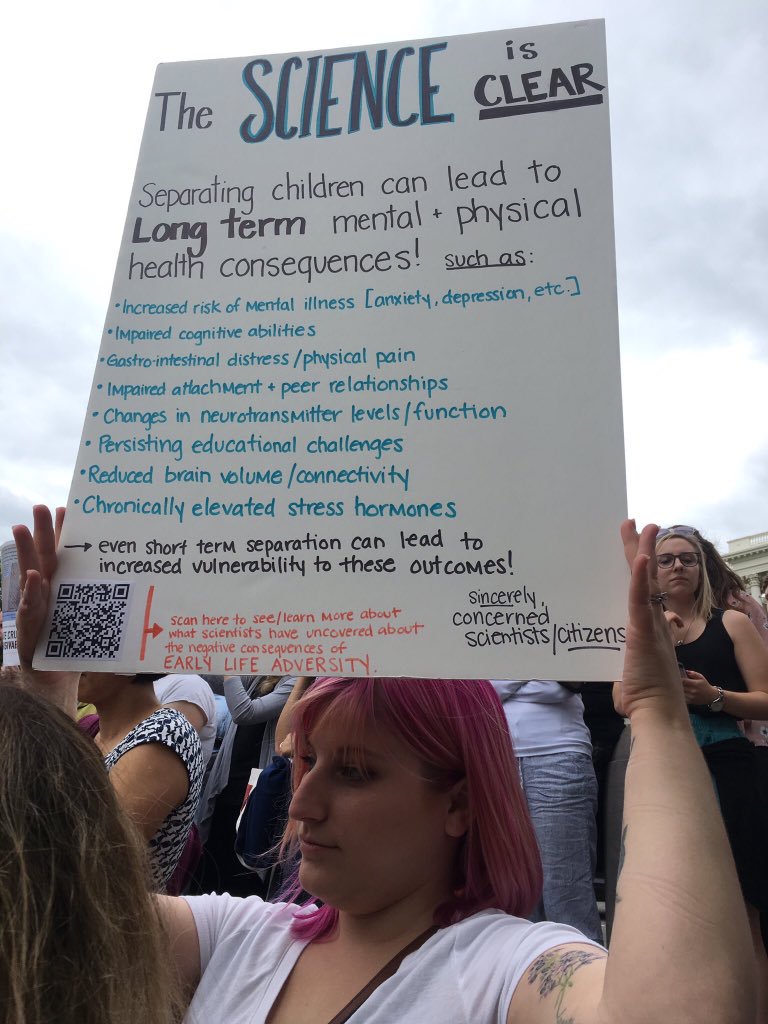 The SCIENCE is CLEAR
Separating children can lead to
Long term mental + physical
health consequences! such as:
• Increased risk of Mental illness [anxiety, depression, etc.]
• Impaired cognitive abilities
• Gastro-intestinal distress/physical pain
• Impaired attachment + peer relationships
• Changes in neurotransmitter levels/function
• Persisting educational challenges
• Reduced brain volume/connectivity
• Chronically elevated stress hormones
→ even short term separation can lead to
increased vulnerability to these outcomes!
scan here to see/learn more about
what scientists have uncovered about
the negative consequences of
EARLY LIFE ADVERSITY.
sincerely,
concerned
scientists/citizens